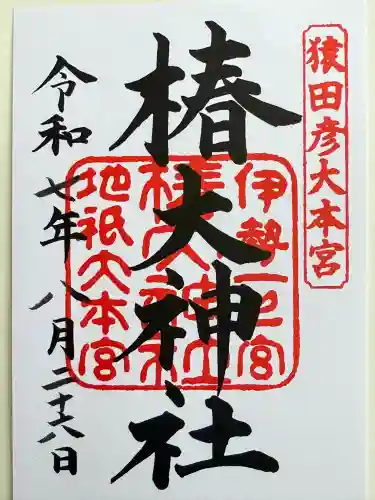 猿田彦大本宮
椿大神社
伊勢一之宮
椿大神社
地祇大本宮
令和七年八月二十八日